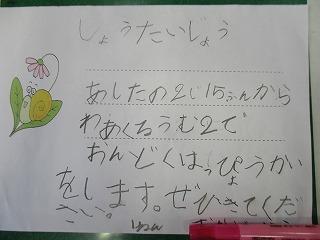 しょうたいじょう
あしたの2じ15ふんから
わあくるうむ2で
おんどくはっぴょうかい
をします。ぜひきてくだ
さい。